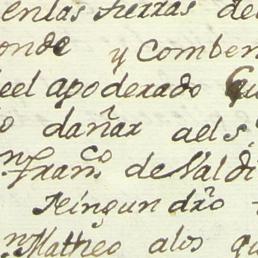 enlas tierras de
onde y Comben
eel apoderado Qu
o dañar aels.r
n Fran.co de Valdi
Ningun dr̃o
n Matheo alos qu